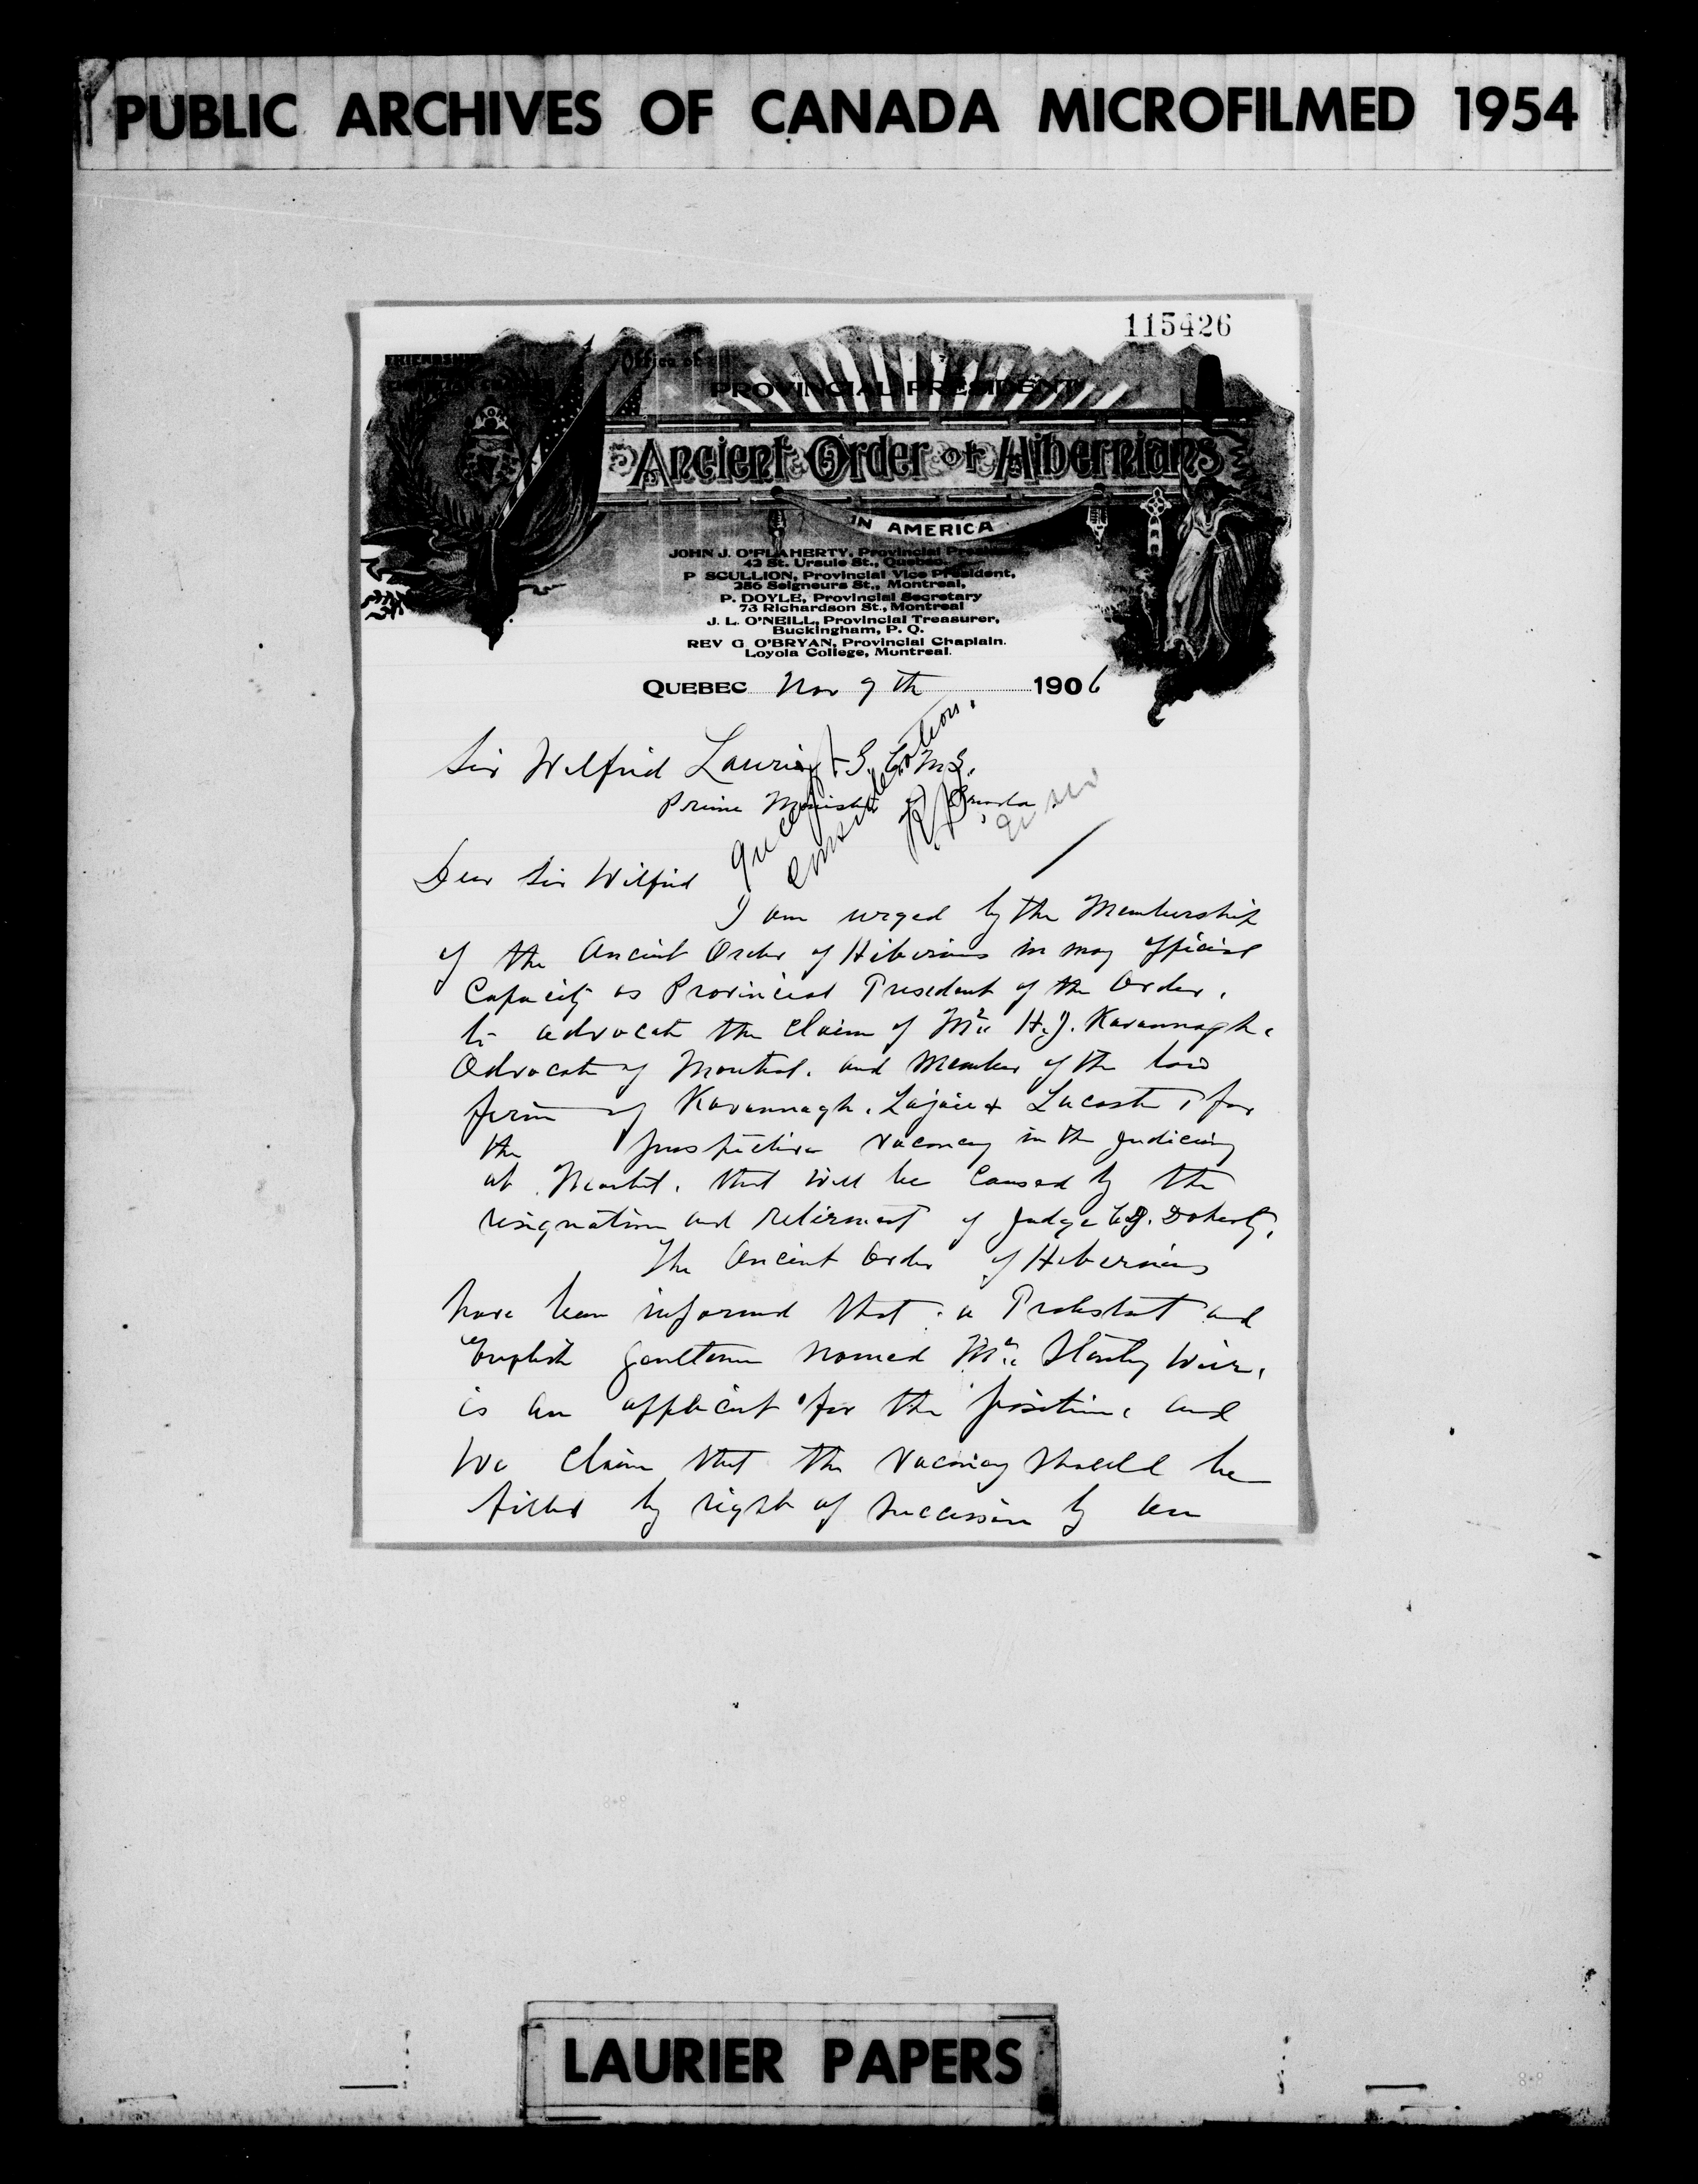 PUBLIC ARCHIVES OF CANADA MICROFILMED 1954
115426
Office of
PROVINCIAL PRESIDENT
Ancient Order of Hibernians
IN AMERICA
JOHN J. O'FLAHERTY, Provincial President
42 St. Ursule St., Quebec.
P SCULLION, Provincial Vice President,
256 Seigneurs St., Montreal,
P. DOYLE, Provincial Secretary
73 Richardson St., Montreal
J. L. O'NEILL, Provincial Treasurer,
Buckingham, P. Q.
REV G O'BRYAN, Provincial Chaplain.
Loyola College, Montreal.
QUEBEC Nov 9th 1906
Sir Wilfrid Laurier G. C. M. G.
Prime Minister of Canada
consideration.
Dear Sir Wilfrid
I am urged by the Membership
of the Ancient Order of Hibernians in my official
Capacity as Provincial President of the Order,
to advocate the claim of Mr. H. J. Kavannagh.
Advocate of Montreal. and Member of the law
firm of Kavannagh. Lajoie & Lacoste, for
the prospective vacancy in the Judiciary
at Montreal. that will be caused by the
resignation and retirement of Judge C. J. Doherty.
The Ancient Order of Hibernians
have been informed that a Protestant and
English gentleman named Mr. Stanley Weir,
is an applicant for the position, and
We claim that the vacancy should be
filled by right of succession by an
LAURIER PAPERS